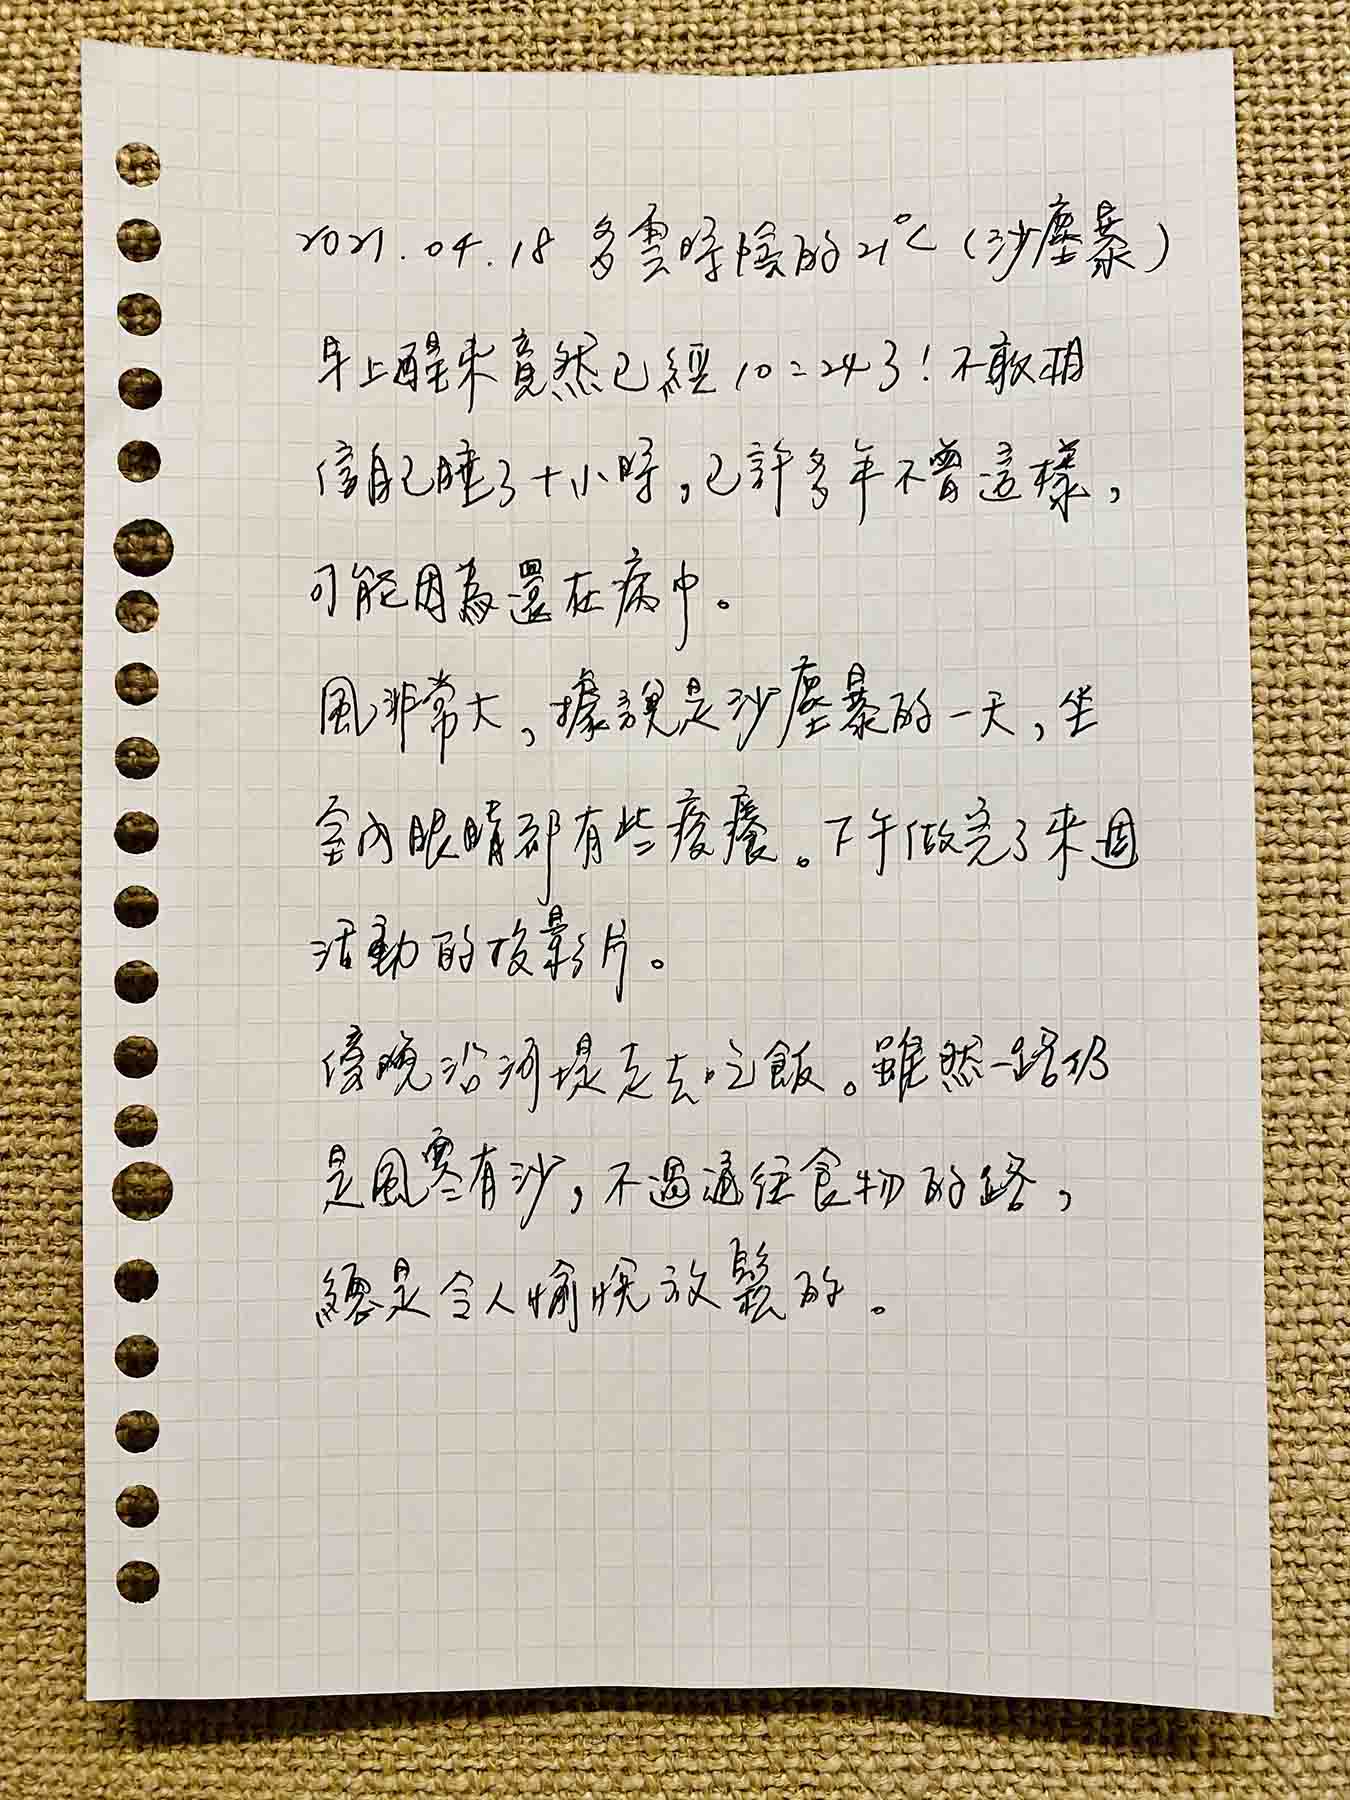 2021.04.18 多雲時陰的21℃（沙塵暴）
早上醒來竟然已經10:24了！不敢相
信自己睡了十小時，已許多年不曾這樣，
可能因為還在病中。
風非常大，據說是沙塵暴的一天，坐
室內眼睛都有些痠癢。下午做完了來週
活動的投影片。
傍晚沿河堤走去吃飯。雖然一路仍
是風雲有沙，不過通往食物的路，
總是令人愉悅放鬆的。